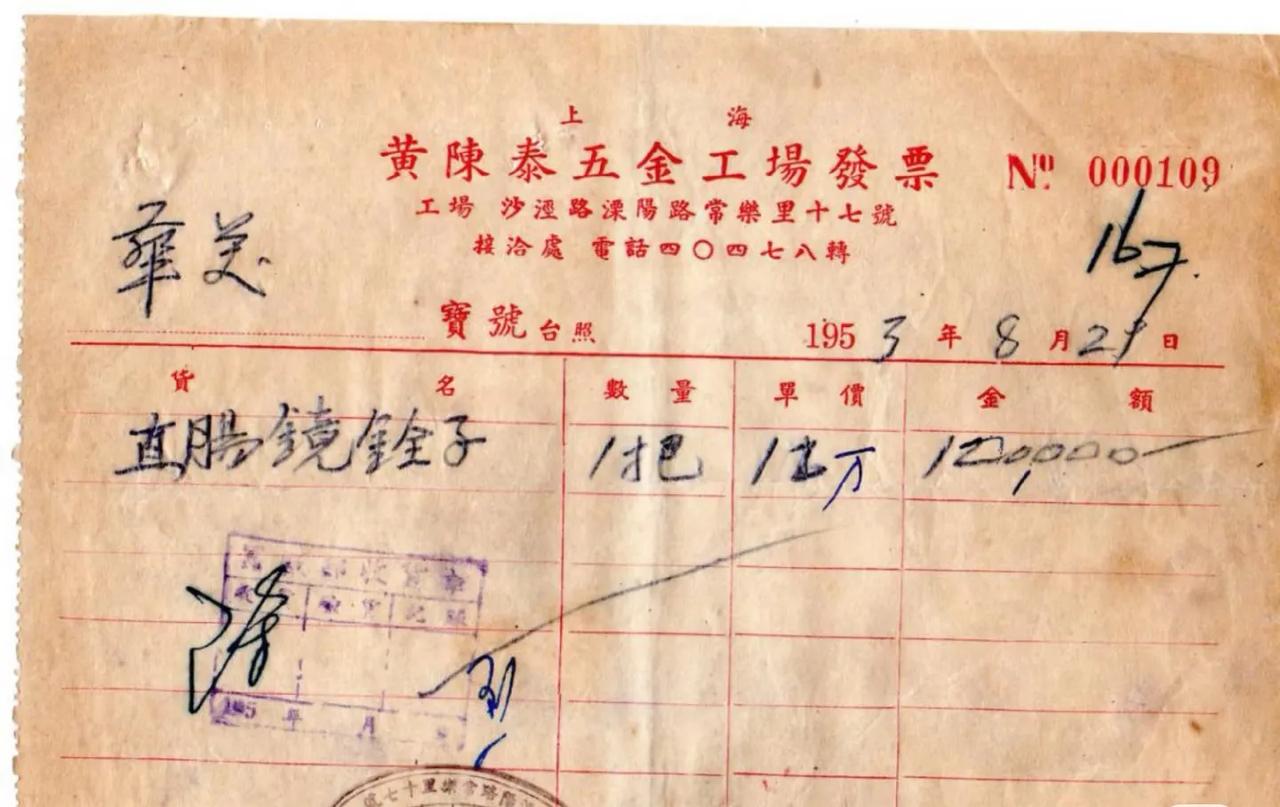 上海
黄陳泰五金工場發票 Nº 000109
工場 沙涇路溧陽路常樂里十七號
接洽處 電話四〇四七八轉
華美
寶號台照 1953年8月29日
貨名 數量 單價 金額
直腸鏡銓子 1把 12万 120,000
收貨
195 年 月
陽路常樂里十七號